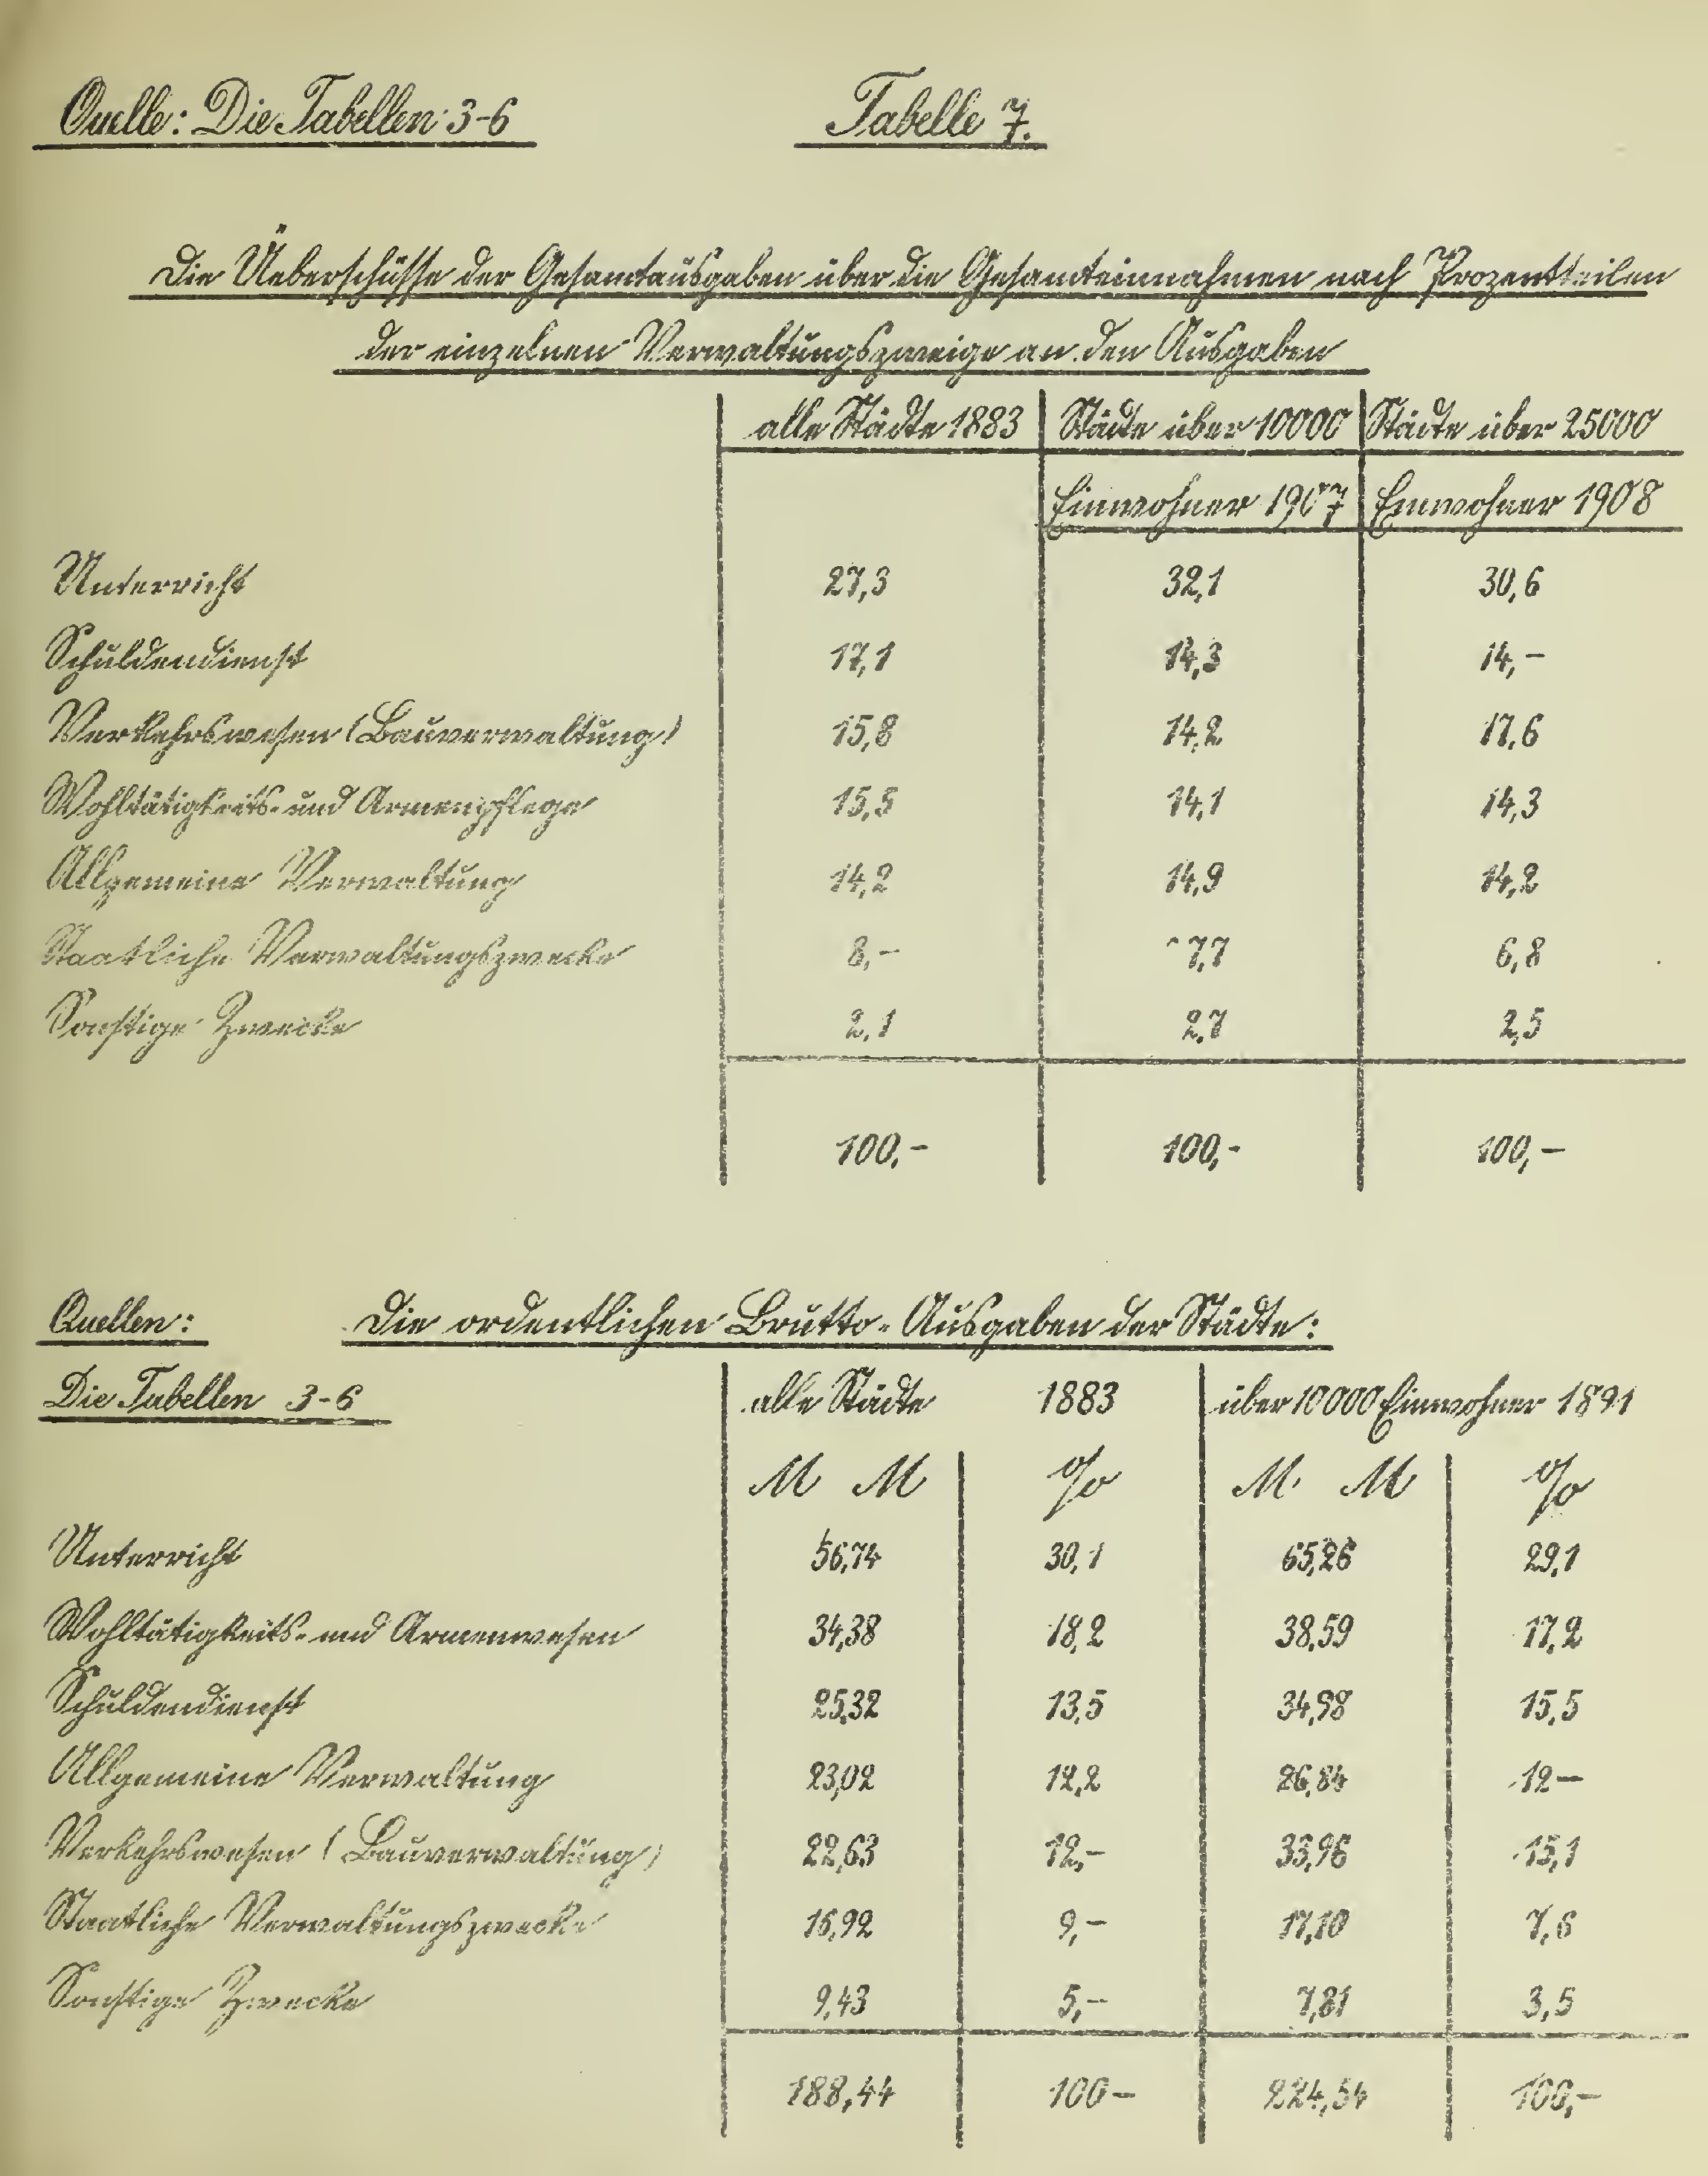 Quelle: Die Tabellen 3-6 Tabelle 7.
Die Üeberschüsse der Gesamtausgaben über die Gesamteinnahmen nach Prozentteilen
der einzelnen Verwaltungszweige an den Ausgaben
alle Städte 1883 Städte über 10000 Städte über 25000
Einwohner 1907 Einwohner 1908
Unterricht 27,3 32,1 30,6
Schuldendienst 17,1 14,3 14,-
Verkehrswesen (Bauverwaltung) 15,8 14,2 17,6
Wohltätigkeits- und Armenpflege 15,5 14,1 14,3
Allgemeine Verwaltung 14,2 14,9 14,2
Staatliche Verwaltungszwecke 8,- 7,7 6,8
Sonstige Zwecke 2,1 2,7 2,5
100,- 100,- 100,-
Quellen: Die ordentlichen Brutto-Ausgaben der Städte:
Die Tabellen 3-6 alle Städte 1883 über 10000 Einwohner 1891
M M % M M %
Unterricht 56,74 30,1 65,26 29,1
Wohltätigkeits- und Armenwesen 34,38 18,2 38,59 17,2
Schuldendienst 25,32 13,5 34,98 15,5
Allgemeine Verwaltung 23,02 12,2 26,84 12-
Verkehrswesen (Bauverwaltung) 22,63 12,- 33,96 15,1
Staatliche Verwaltungszwecke 16,92 9,- 17,10 7,6
Sonstige Zwecke 9,43 5,- 7,81 3,5
188,44 100- 224,54 100,-